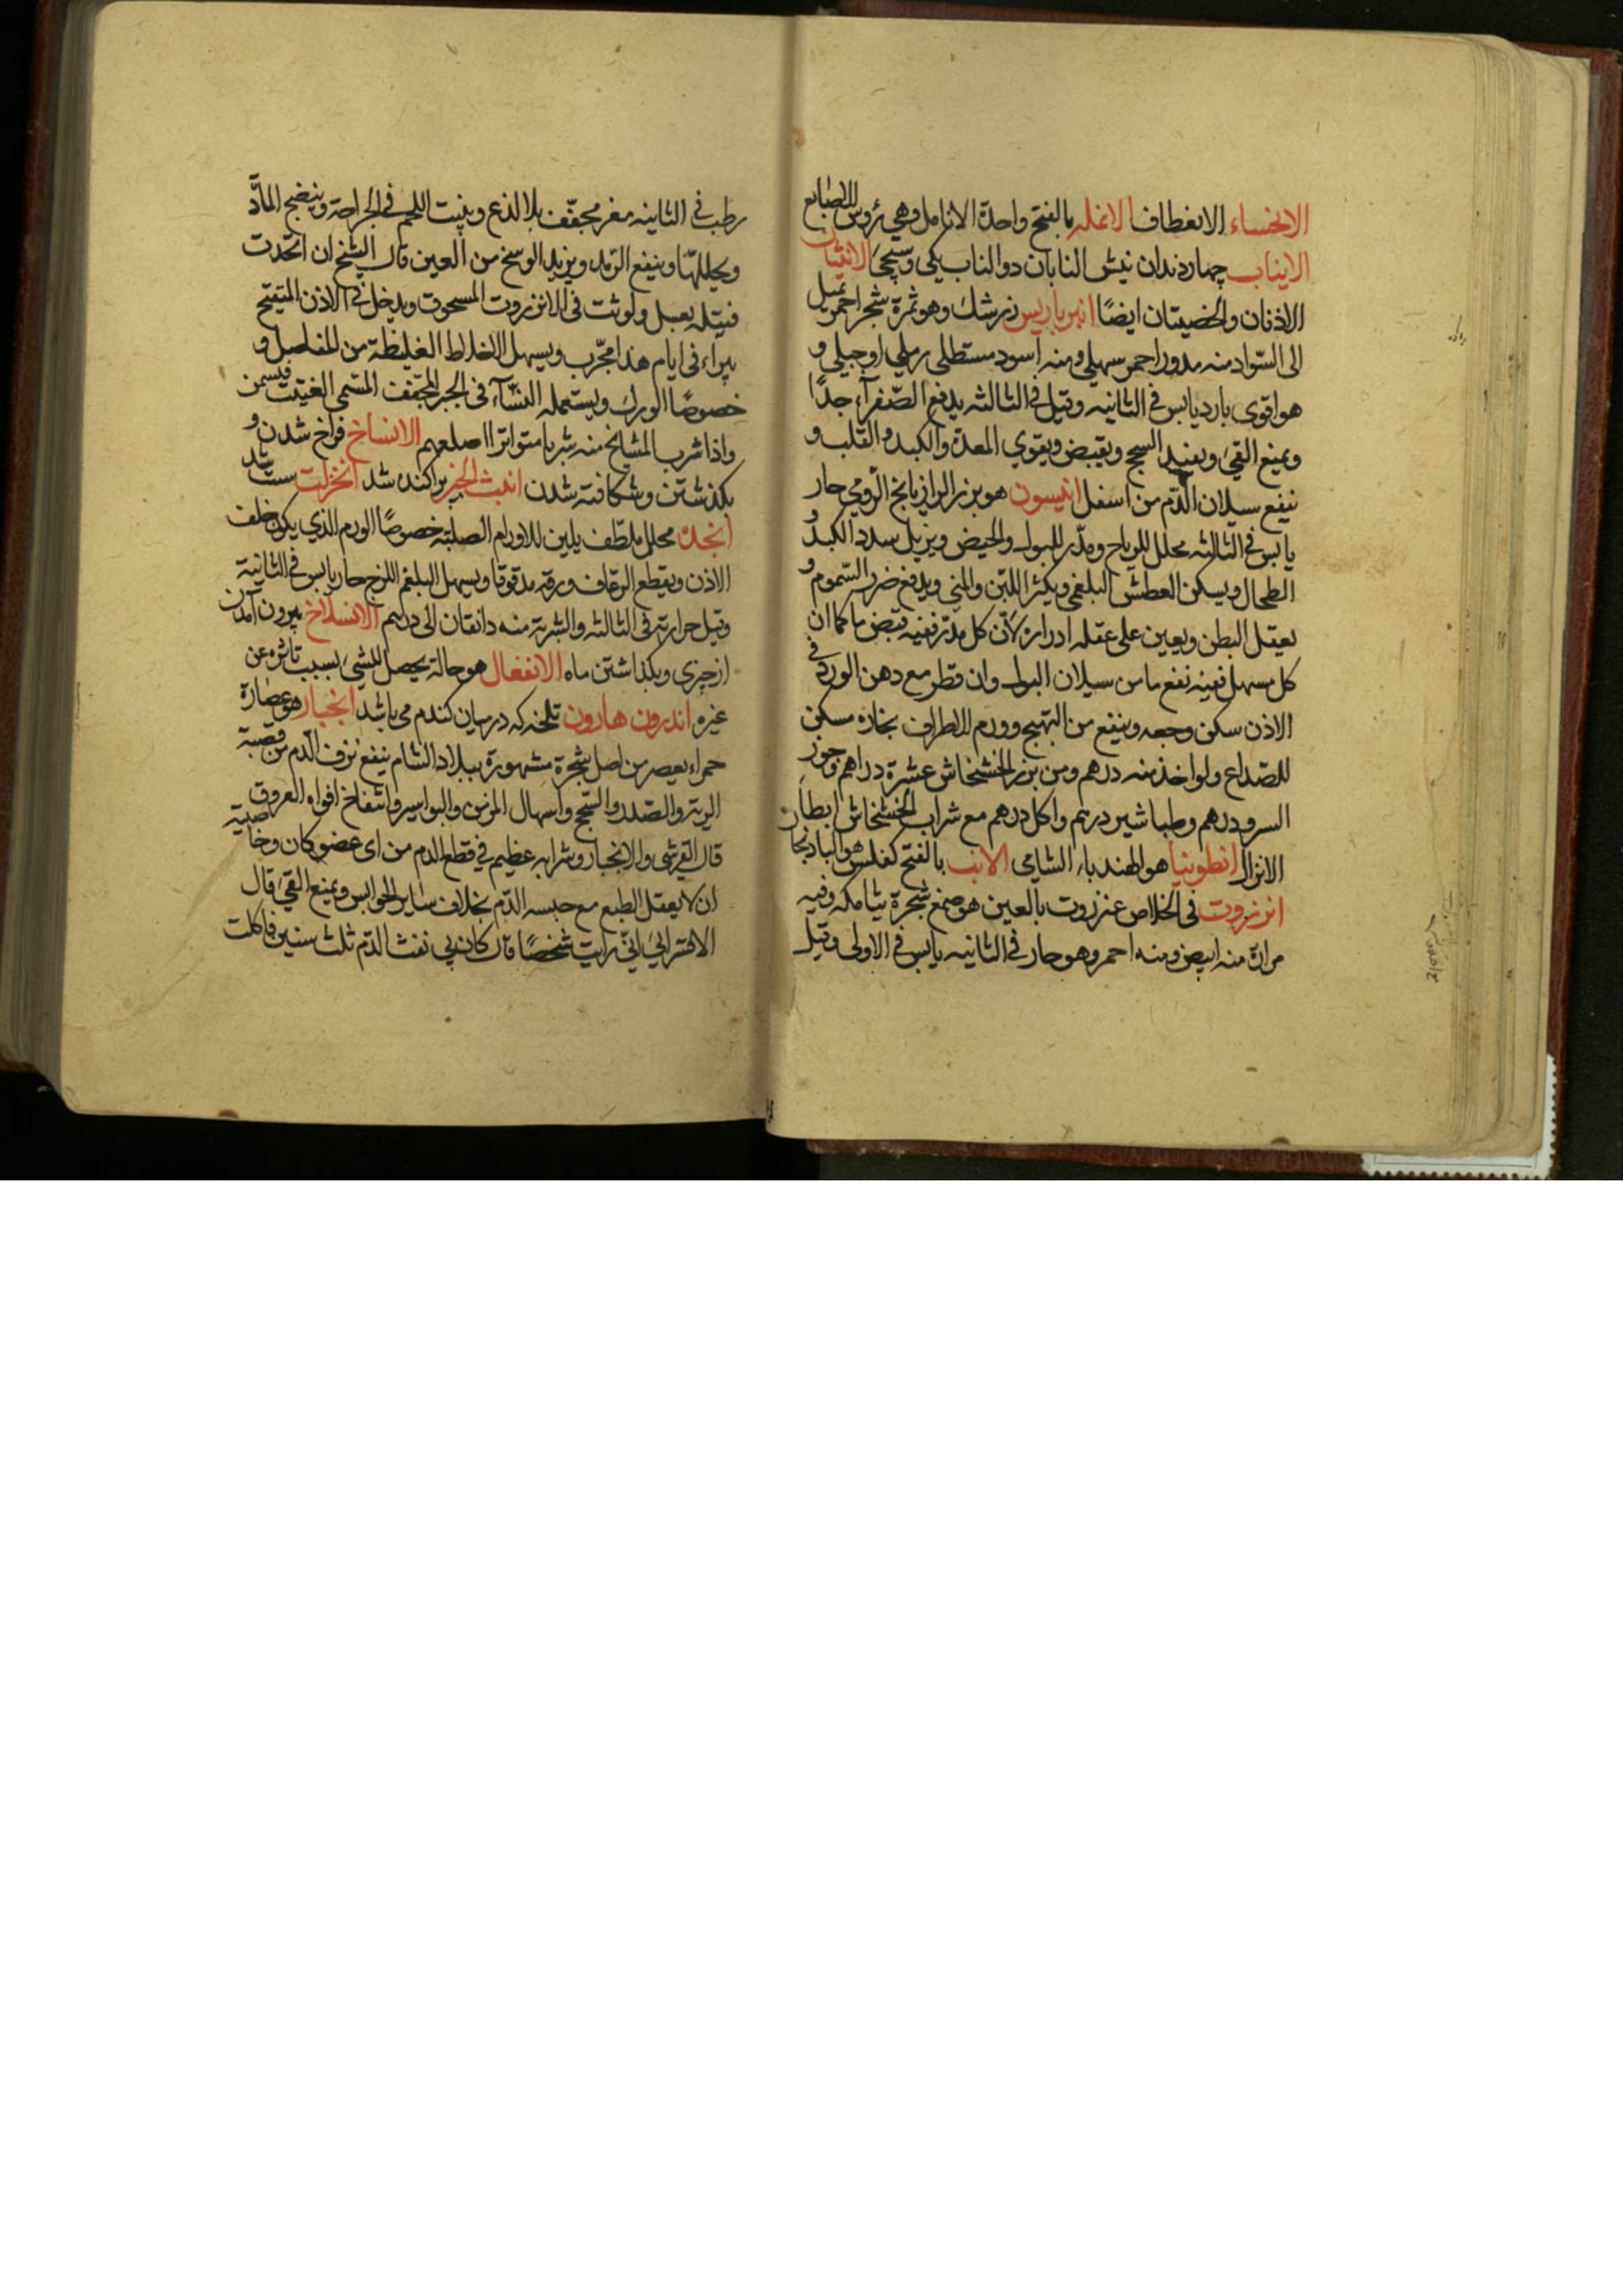 الانحساء الانعطاف الانمله بالفتح واحدة الانامل وهي رؤس الاصابع
الانياب چهار دندان نيش النابان دو الناب يكي وسيجئ الانثيان
الاذنان والخصيتان ايضًا انبرباريس زرشك وهو ثمرة شجر احمر يميل
الى السّواد منه مدور احمر سهيلي ومنه اسود مستطلى رملي او جبلي و
هو اقوى بارد يابس في الثانيه وقيل في الثالثه يدفع الصّفرآء جدًا
ويمنع القئ ويفيد السحج ويقبض ويقوي المعدة والكبد والقلب و
ينفع سيلان الدّم من اسفل انيسون هو بزر الرازيانج الرّومي حار
يابس في الثالثه محلل للرياح ومدّر للبول والحيض ويزيل سدد الكبد و
الطحال ويسكن العطش البلغمي ويكثر اللبن والمني ويدفع ضرر السّموم و
يعقل البطن ويعين على عقله ادراره لانّ كل مدّر ففيه قبض ما كما ان
كل مسهل ففيه نفع ما من سيلان البول وان قطر مع دهن الورد في
الاذن سكن وجعه وينفع من التهيج وورم الاطراف بخاره مسكن
للصّداع ولو اخذ منه درهم ومن بزر الخشخاش عشرة دراهم وجوز
السرو درهم وطباشير درهم واكل درهم مع شراب الخشخاش ابطأ
الانزال انطوبيا هو الهندباء الشامى الانب بالفتح كفلس هو البادنجا
انزروت فى الخلاص عنزروت بالعين هو صمغ شجرة شامكه وفيه
مرارة منه ابيض ومنه احمر وهو حار في الثانيه يابس في الاولى وقيل
رطب في الثانيه مغر مجفّف بلا لذع وينبت اللحم في الجراحة وينضج المادّ
ويحللها وينفع الرّمد ويزيل الوسخ من العين قال الشيخ ان اتخدت
فتيله بعسل ولوثت فى الانزروت المسحوق ويدخل في الاذن المتقيح
يبراء فى ايام هذا مجّرب ويسهل الاخلاط الغليظة من المفاصل و
خصوصًا الورك ويستعمله النسّآء فى الخبز المجفّف المسّمى الفتيت فيسمن
واذا شرب المشايخ منه شربا متواترا اصلعهم الانساخ فراخ شدن و
بگذشتن وشكافته شدن انبث الخبر پراكنده شد انخزلت سست شد
انجدة محلل ملطّف يلين للاورام الصلبة خصوصًا الورم الذي يكون خلف
الاذن ويقطع الرعاف ورقه مدقوقا ويسهل البلغم اللزج حار يابس في الثانية
وقيل حرارته فى الثالثه والشربة منه دانقان الى درهم الانسلاخ بيرون آمدن
از چيزى وبگذاشتن ماه الانفعال هو حالة يحصل للشئ بسبب تاثره عن
غيره اندرون هارون تلخه كه درميان گندم مى باشد انجبار هو عصارة
حمراء يعصر من اصل شجرة مشهورة ببلاد الشام ينفع نزف الدّم من قصبة
الريّة والصّدر والسّحج واسهال المزمن والبواسير وانتفاخ افواه العروق
قال القرشى والانجبار وشرابه عظيم في قطع الدم من اى عضو كان وخاصيته
ان لا يعقل الطبع مع حبسه الدّم بخلاف ساير الحوابس ويمنع القئ قال
الاهترائي انّي رايت شخصًا قد كان بي نفث الدّم ثلث سنين فاكلت